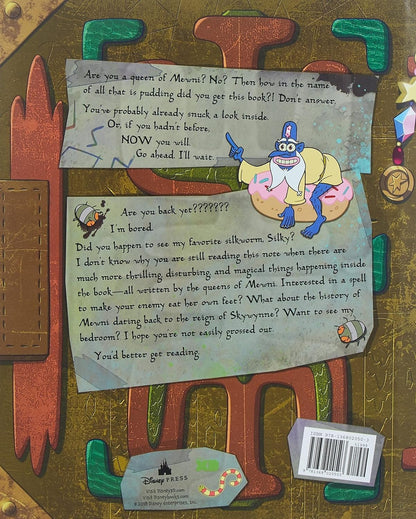 Are you a queen of Mewni? No? Then how in the name
of all that is pudding did you get this book?! Don't answer.
You've probably already snuck a look inside.
Or, if you hadn't before,
NOW you will.
Go ahead. I'll wait.
Are you back yet???????
I'm bored.
Did you happen to see my favorite silkworm, Silky?
I don't know why you are still reading this note when there are
much more thrilling, disturbing, and magical things happening inside
the book—all written by the queens of Mewni. Interested in a spell
to make your enemy eat her own feet? What about the history of
Mewni dating back to the reign of Skywynne? Want to see my
bedroom? I hope you're not easily grossed out.
You'd better get reading.
DISNEY PRESS
XD
Visit DisneyXD.com
Visit disneybooks.com
© 2018 Disney Enterprises, Inc.